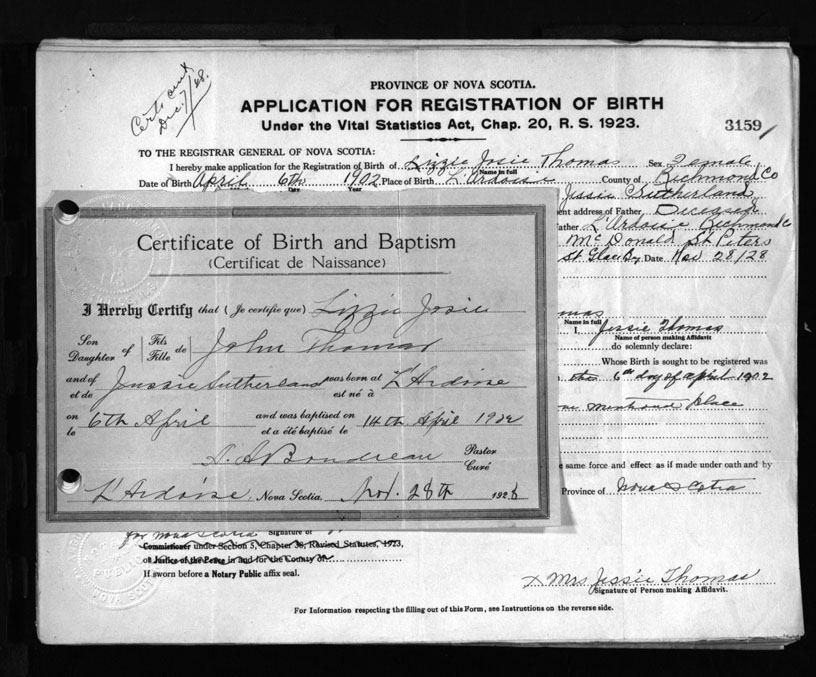 Cert. out
Dec. 7/48.
PROVINCE OF NOVA SCOTIA.
APPLICATION FOR REGISTRATION OF BIRTH
Under the Vital Statistics Act, Chap. 20, R. S. 1923.
3159
TO THE REGISTRAR GENERAL OF NOVA SCOTIA:
I hereby make application for the Registration of Birth of Lizzie Josie Thomas Sex Female
Name in full
Date of Birth April 6th 1902 Place of Birth L'Ardoise County of Richmond Co
Day Year
Jessie Sutherland
ent address of Father, Deceased
ather L'Ardoise Richmond C
McDonald St Peters
Date Nov 28/28
Certificate of Birth and Baptism
(Certificat de Naissance)
I Hereby Certify that (Je certifie que) Lizzie Josie
Son Daughter of Fils Fille de John Thomas
and of et de Jessie Sutherland was born at est né à L'Ardoise
on le 6th April and was baptised on et a été baptisé le 14th April 1902
A. A. Boudreau Pastor Curé
L'Ardoise Nova Scotia. Nov. 28th 1928
omas
Name in full
I, Jessie Thomas
Name of person making Affidavit
do solemnly declare:
Whose Birth is sought to be registered was
the 6th day of April 1902
place
e same force and effect as if made under oath and by
Province of Nova Scotia
for Nova Scotia Signature of
Commissioner under Section 5, Chapter 38, Revised Statutes, 1923,
or Justice of the Peace in and for the County of
If sworn before a Notary Public affix seal.
x Mrs Jessie Thomas
Signature of Person making Affidavit.
For Information respecting the filling out of this Form, see Instructions on the reverse side.